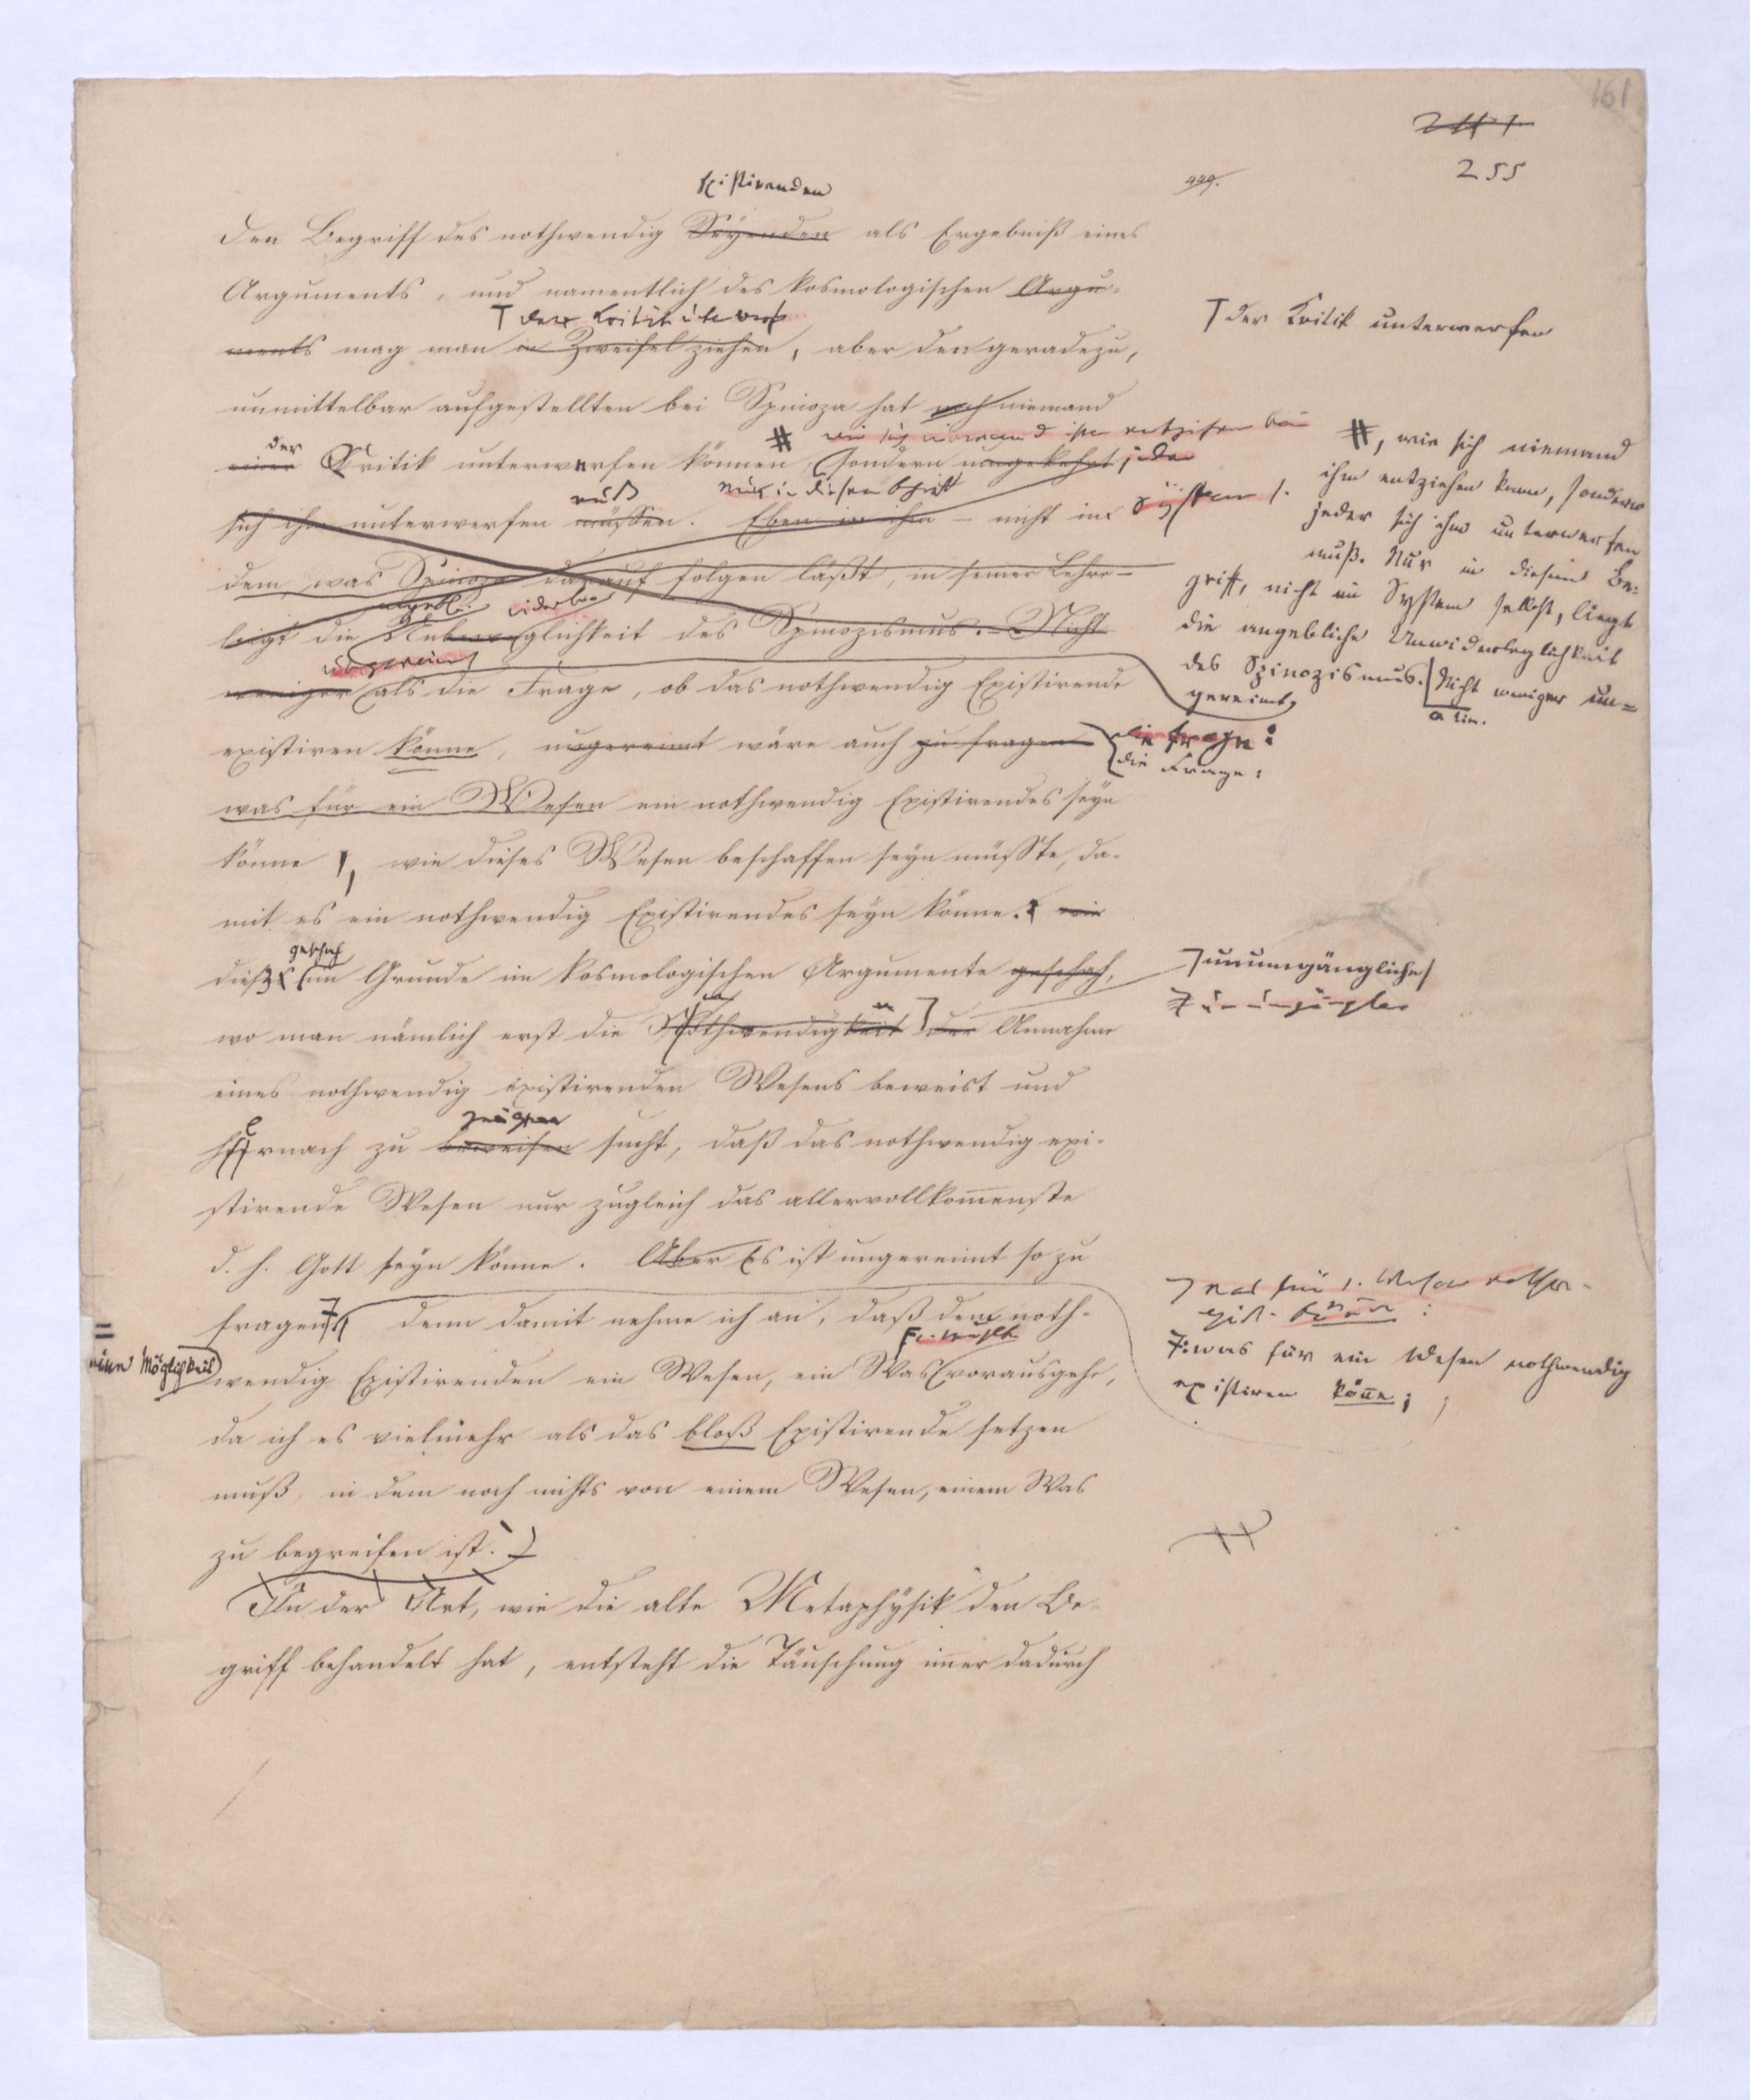 161
211
255
449.
Existirenden
Den Begriff des nothwendig Seyenden als Ergebniß eines
Arguments, und namentlich des kosmologischen Argu-
der Kritik
ments mag man in Zweifel ziehen, aber den geradezu,
der Kritik unterwerfen
unmittelbar aufgestellten bei Spinoza hat noch niemand
wie sich niemand ihm entziehen kann
der
einer Kritik unterwerfen können, sondern umgekehrt jeder
muß Nur in diesem Begriff
sich ihm unterwerfen müssen. Eben in ihm – nicht im System
dem, was Spinoza darauf folgen läßt, in seiner Lehre –
angebl.
liegt die Unbeweglichkeit des Spinozismus. – Nicht
ungereimt
weniger als die Frage, ob das nothwendig Existirende
#, wie sich niemand
ihm entziehen kann, sondern
jeder sich ihm unterwerfen
muß. Nur in diesem Be-
griff, nicht im System selbst, liegt
die angebliche Unwiderleglichkeit
des Spinozismus. Nicht weniger un-
gereimt,
a lin.
existiren könne, ungereimt wäre auch zu fragen die Frage:
die Frage:
was für ein Wesen ein nothwendig Existirendes seyn
könne, wie dieses Wesen beschaffen seyn müßte, da-
mit es ein nothwendig Existirendes seyn könne. wie
geschah
dieß im Grunde im kosmologischen Argumente geschah,
unumgängliche
wo man nämlich erst die Nothwendigkeit der Annahme
eines nothwendig existirenden Wesens beweist und
zeigen
hernach zu beweisen sucht, daß das nothwendig exi-
stirende Wesen nur zugleich das allervollkom̅enste
d. h. Gott seyn könne. Aber Es ist ungereimt so zu
fragen denn damit nehme ich an, daß dem noth-
was für ein Wesen nothwendig
existiren kön̅e;
eine Möglichkeit
wendig Existirenden ein Wesen, ein Was vorausgehe,
da ich es vielmehr als das bloß Existirende setzen
muß, in dem noch nichts von einem Wesen, einem Was
zu begreifen ist.
In der Art, wie die alte Metaphysik den Be-
griff behandelt hat, entsteht die Täuschung im̅er dadurch